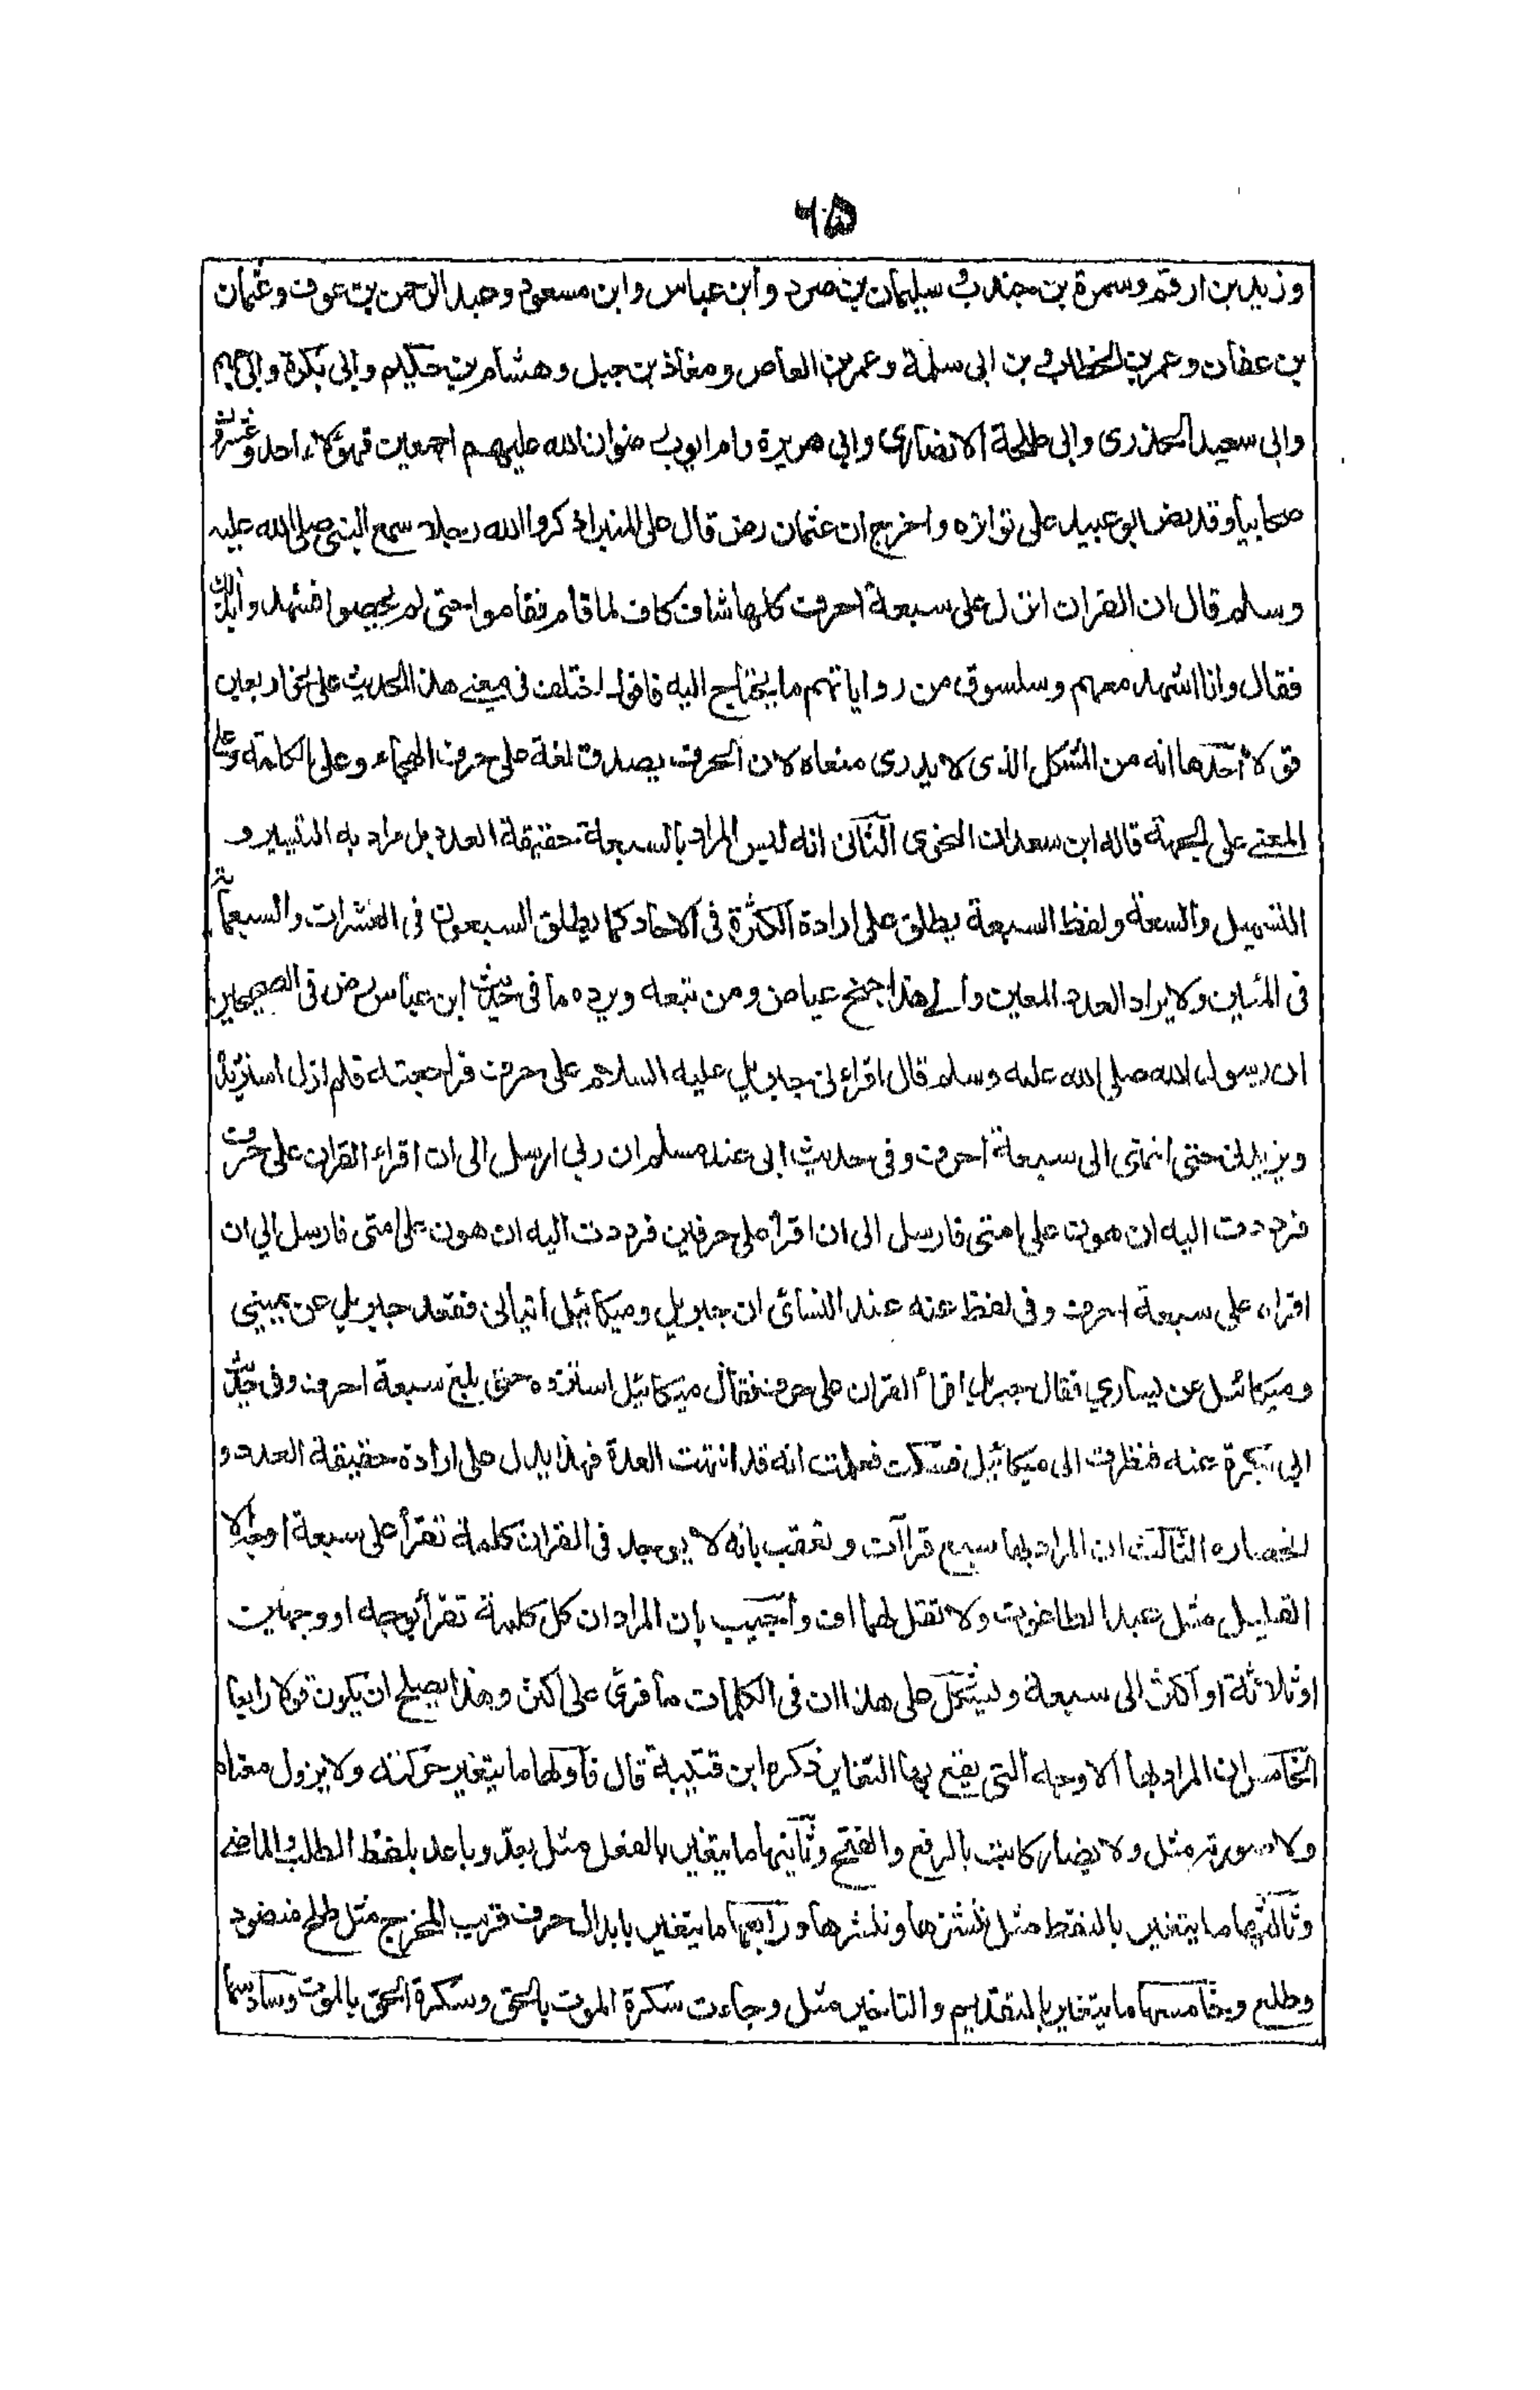 ٦٥
وزيد بن ارقم وسمرة بن جندب و سليمان بن صرد وابن عباس وابن مسعود وعبد الرحمن بن عوف وعثمان
بن عفان وعمر بن الخطاب و بن ابى سلمة وعمر بن العاص ومعاذ بن جبل وهشام بن حكيم وابى بكرة وابى جهم
وابى سعيد الخذرى وابى طلحة الانصارى وابى هريرة وام ايوب رضوان الله عليهم اجمعين فهؤلاء احد وعشرون
صحابيا وقد نص ابو عبيد على تواتره واخرج ان عثمان رض قال على المنبر اذكروا الله رجلا سمع النبى صلى الله عليه
وسلم قال ان القران انزل على سبعة احرف كلها شاف كاف لما قام فقاموا حتى لم يحصوا فشهدوا بذلك
فقال وانا اشهد معهم وسلسوق من رواياتهم ما يحتاج اليه فاقول اختلف فى معنے هذا الحديث على نحو اربعين
قولا احدها انه من المشكل الذى لا يدرى معناه لان الحرف يصدق لغة على حرف الهجاء وعلى الكلمة وعلى
المعنے على الجهة قاله ابن سعدان النحوى الثانى انه ليس المراد بالسبعة حقيقة العدد بل مراد به التيسير و
التسهيل والسعة ولفظ السبعة يطلق على ارادة الكثرة فى الاحاد كما يطلق السبعون فى العشرات والسبعمأية
فى المئين ولا يراد العدد المعين والے هذا جنح عياض ومن تبعه ويرده ما فى حديث ابن عباس رض فى الصحيحين
ان رسول الله صلى الله عليه وسلم قال اقراءنى جبريل عليه السلام على حرف فراجعته فلم ازل استزيده
ويزيدنى حتى انتهى الى سبعة احرف وفى حديث ابى عند مسلم ان ربى ارسل الى ان اقراء القران على حرف
فرددت اليه ان هون على امتى فارسل الى ان اقرأ على حرفين فرددت اليه ان هون على امتى فارسل الي ان
اقراه على سبعة احرف وفى لفظ عنه عند النسائى ان جبريل وميكائيل اتيانى فقعد جبريل عن يمينى
وميكائيل عن يساري فقال جبريل اقرأ القران على حرف فقال ميكائيل استزده حتى بلغ سبعة احرف وفى حديث
ابى بكرة عنه فنظرت الى ميكائيل فسكت فعلمت انه قد انتهت العدة فهذا يدل على ارادة حقيقة العدد و
انحصاره الثالث ان المراد بها سبع قراآت وتعقب بانه لا يوجد فى القران كلمة تقرأ على سبعة اوجه الا
القليل مثل عبد الطاغوت ولا تقل لهما اف واجيب بان المراد ان كل كلمة تقرأ بوجه او وجهين
او ثلاثة او اكثر الى سبعة وليشكل على هذا ان فى الكلمات ما قرئ على اكثر وهذا يصلح ان يكون قولا رابعا
الخامس ان المراد بها الاوجه التى يقع بها التغاير ذكره ابن قتيبة قال فاولها ما يتغير حركته ولا يزول معناه
ولا صورته مثل ولا يضار كاتب بالرفع والفتح وثانيها ما يتغير بالفعل مثل بعد وباعد بلفظ الطلب والماضے
وثالثها ما يتغير بالنقط مثل ننشزها وننشرها ورابعها ما يتغير بابدال حرف قريب المخرج مثل طلح منضود
وطلع وخامسها ما يتغير بالتقديم والتاخير مثل وجاءت سكرة الموت بالحق وسكرة الحق بالموت وسادسها